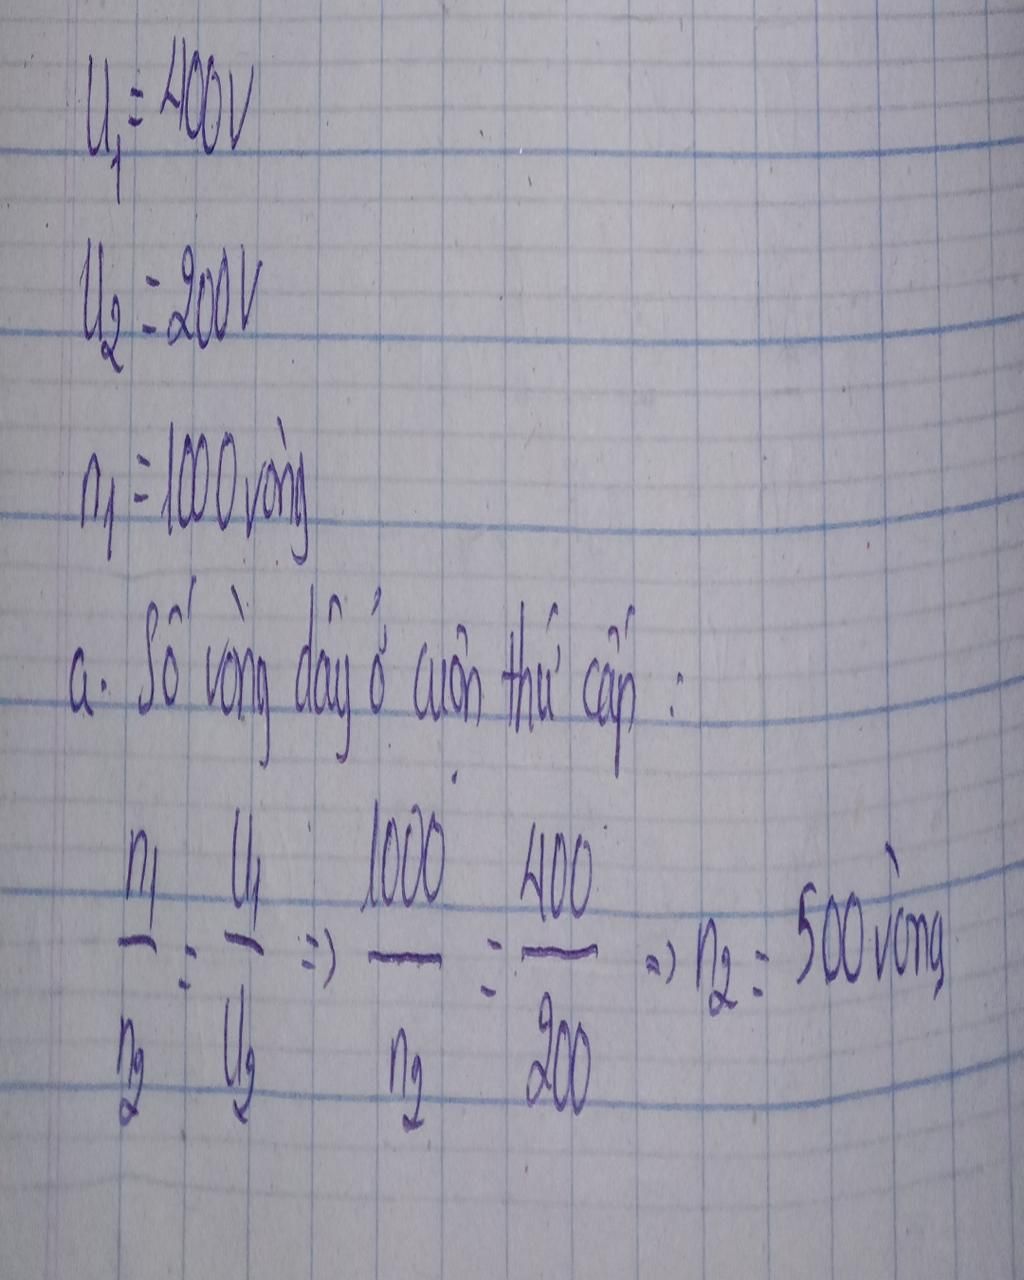 U₁ = 400V
U₂ = 200V
n₁ = 1000 vòng
a. Số vòng dây ở cuộn thứ cấp :
n₁/n₂ = U₁/U₂ => 1000/n₂ = 400/200 => n₂ = 500 vòng